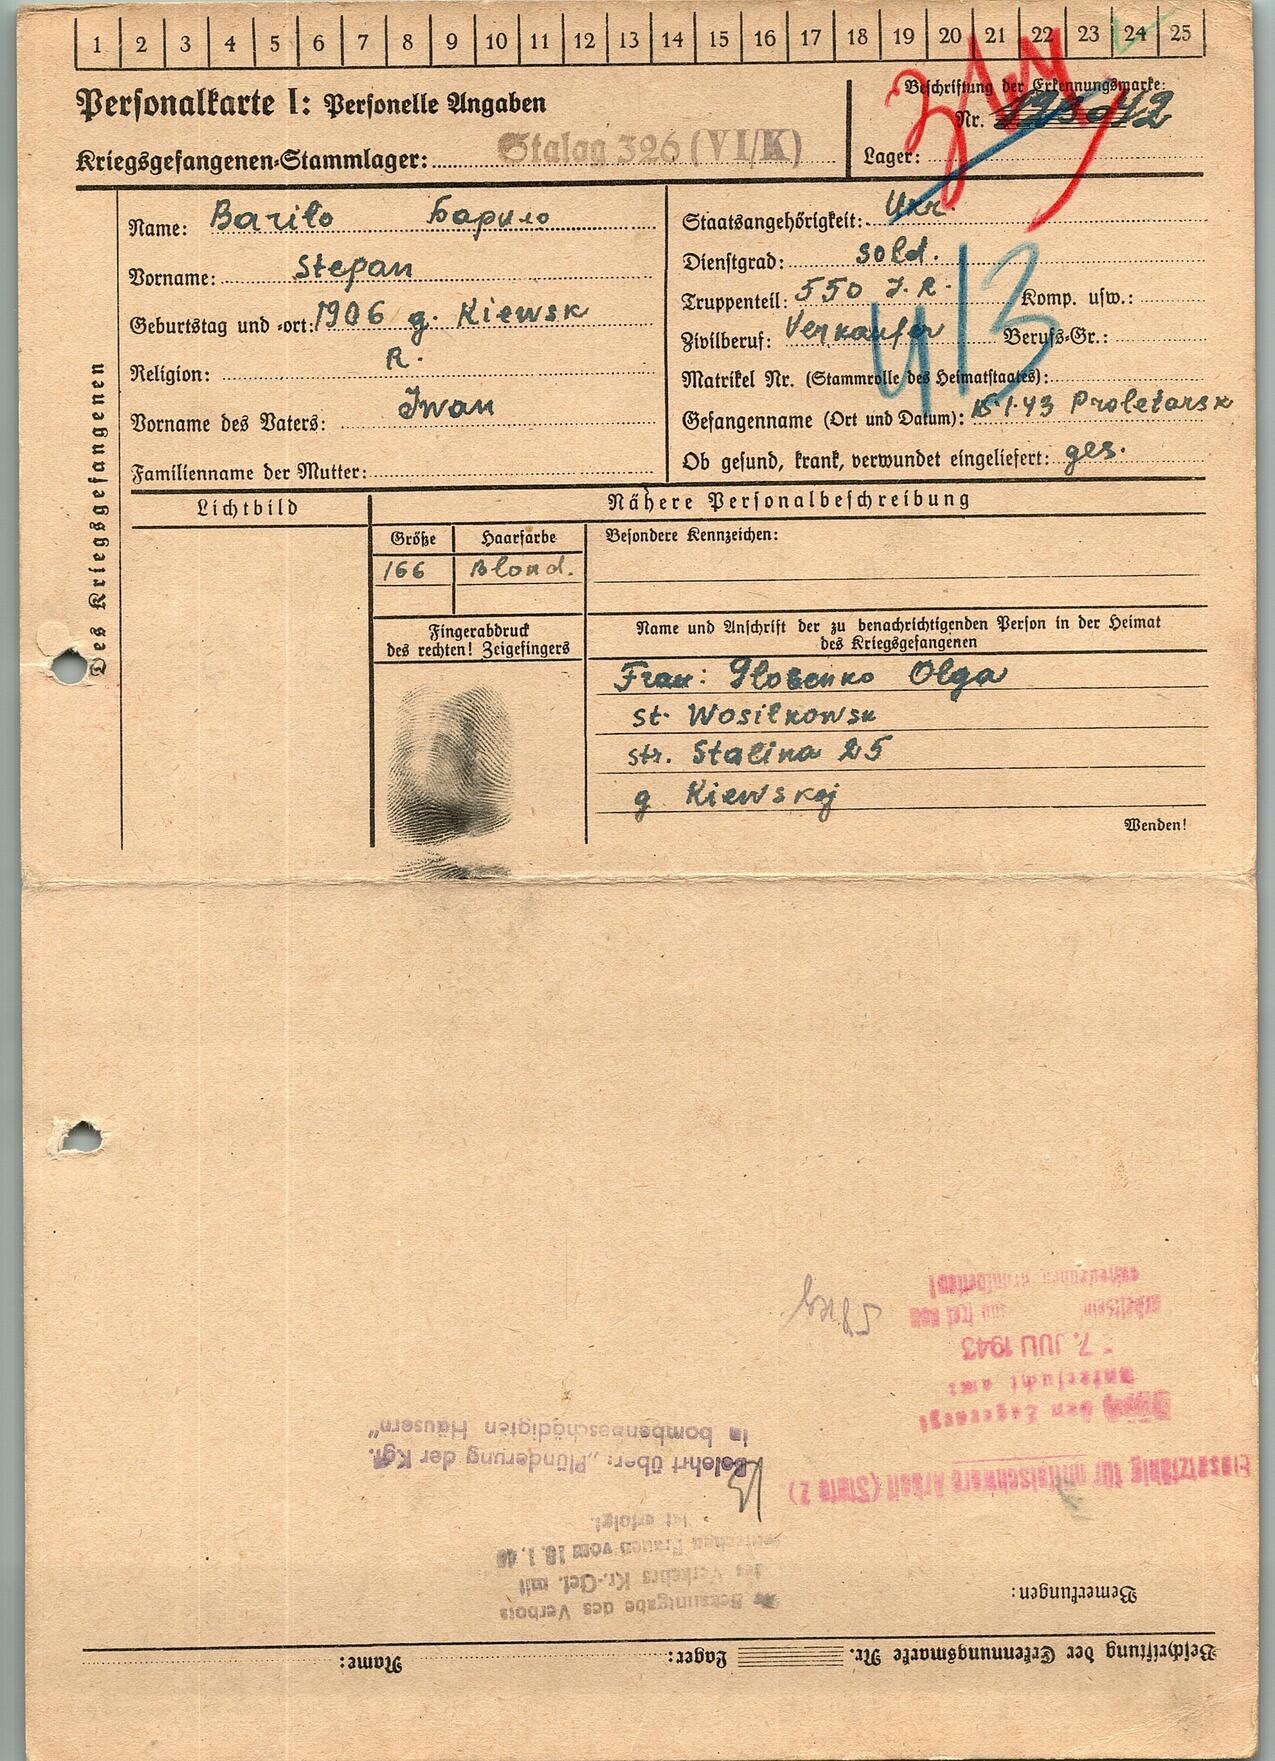 1 2 3 4 5 6 7 8 9 10 11 12 13 14 15 16 17 18 19 20 21 22 23 24 25
Personalkarte I: Personelle Angaben
Kriegsgefangenen-Stammlager: Stalag 326 (VI/K)
Beschriftung der Erkennungsmarke:
Nr.
Lager:
Des Kriegsgefangenen
Name: Barilo Барило
Vorname: Stepan
Geburtstag und -ort: 1906 g. Kiewsk
Religion: R.
Vorname des Vaters: Iwan
Familienname der Mutter:
Staatsangehörigkeit: Ukr.
Dienstgrad: Sold.
Truppenteil: 550 J.R. Komp. usw.:
Zivilberuf: Verkaufer Berufs-Gr.:
Matrikel Nr. (Stammrolle des Heimatstaates):
Gefangenname (Ort und Datum): 15.1.43 Proletarsk
Ob gesund, krank, verwundet eingeliefert: ges.
413
Lichtbild
Nähere Personalbeschreibung
Größe Haarfarbe
166 Blond.
Besondere Kennzeichen:
Fingerabdruck
des rechten! Zeigefingers
Name und Anschrift der zu benachrichtigenden Person in der Heimat
des Kriegsgefangenen
Frau: Olga
st. Wosilkowsk
str. Stalina 25
g Kiewskoj
Wenden!
Beschriftung der Erkennungsmarke Nr. Lager: Name:
Bemerkungen:
Bekanntgabe des Verbots
des Verkehrs Kr.-Gef. mit
deutschen Frauen vom 18.1.40
ist erfolgt.
Einsatzfähig für mittelschwere Arbeit (Stufe 2)
Belehrt über: „Plünderung der Kgf.
in bombenbeschädigten Häusern"
den Lagerarzt
untersucht am:
7. JULI 1943
und frei von
Krankheiten!